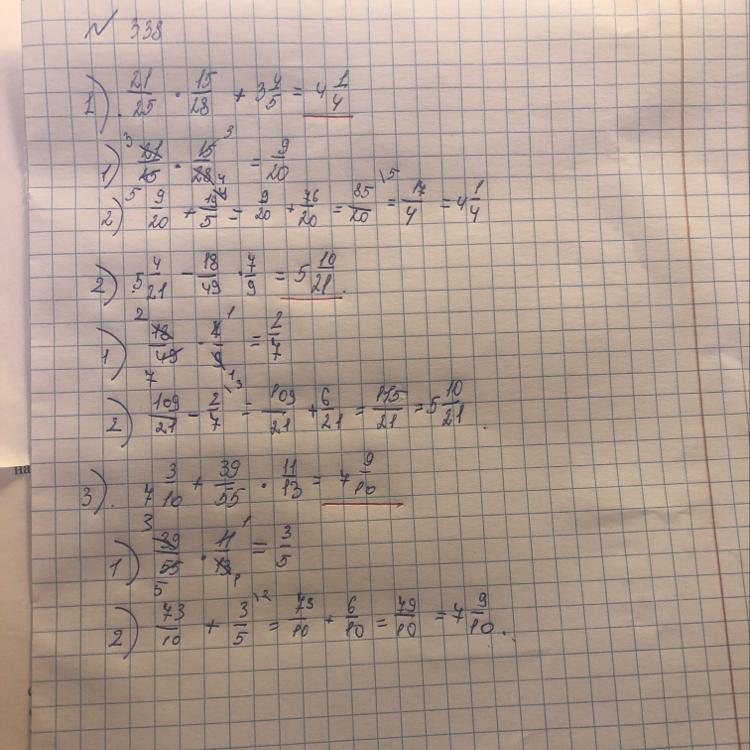 № 338
1) 21/25 · 15/28 + 3 4/5 = 4 1/4
1) 3 21/25 5 · 15/28 3 4 = 9/20
2) 9/20 + 19/5 \4 = 9/20 + 76/20 = 85/20 \5 = 17/4 = 4 1/4
2) 5 4/21 - 18/49 · 7/9 = 5 10/21.
1) 2 18/49 7 · 7/9 1 1 = 2/7
2) 109/21 - 2/7 \3 = 109/21 + 6/21 = 115/21 = 5 10/21.
3). 7 3/10 + 39/55 · 11/13 = 7 9/10
1) 3 39/55 5 · 11/13 1 1 = 3/5
2) 73/10 + 3/5 \2 = 73/10 + 6/10 = 79/10 = 7 9/10.
на